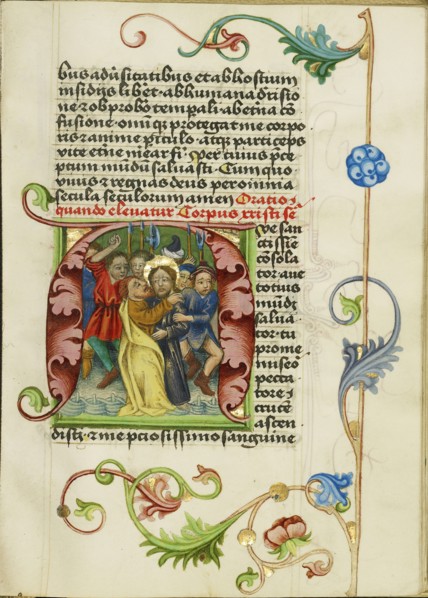 bus adūsitatibus et ab hostium
insidijs libēt · ab humana d̄risio
ne ⁊ obprobo tempali · ab et̄na cō
fusione · protegat me corpo
ris ⁊ anime piculo · atq̄ particeps
vite et̄ne Per cuius p̄ce
ptum mūdū saluasti · Cum quo ·
viuis ⁊ regnas deus per omnia
secula seculorum amen Oratio ·
quando eleuatur Corpus xristi
A
ve san
ctissīe
cōsola
tor aue
totius
mūdi
salua
tor · tu
pro me
miseō
pecca
tore
crucē
ascen
disti · ⁊ me p̄ciosissimo sanguine